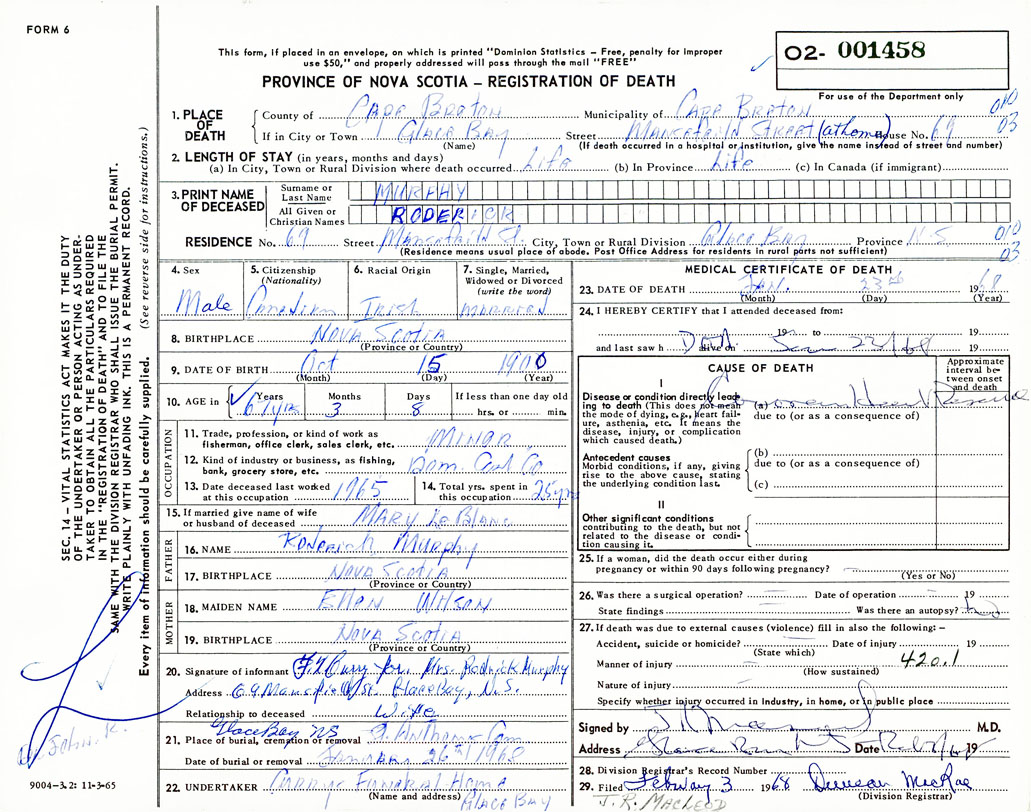 FORM 6
This form, if placed in an envelope, on which is printed "Dominion Statistics – Free, penalty for improper
use $50," and properly addressed will pass through the mail "FREE"
O2- 001458
PROVINCE OF NOVA SCOTIA – REGISTRATION OF DEATH
For use of the Department only
1. PLACE OF DEATH
County of Cape Breton Municipality of Cape Breton 010
If in City or Town Glace Bay Street Mansfield Street (at home) House No. 69 03
(Name) (If death occurred in a hospital or institution, give the name instead of street and number)
2. LENGTH OF STAY (in years, months and days)
(a) In City, Town or Rural Division where death occurred Life (b) In Province Life (c) In Canada (if immigrant)
3. PRINT NAME OF DECEASED
Surname or Last Name MURPHY
All Given or Christian Names RODERICK
RESIDENCE No. 69 Street Mansfield St. City, Town or Rural Division Glace Bay Province N.S. 010
(Residence means usual place of abode. Post Office Address for residents in rural parts not sufficient) 03
4. Sex Male
5. Citizenship (Nationality) Canadian
6. Racial Origin Irish
7. Single, Married, Widowed or Divorced (write the word) Married
8. BIRTHPLACE Nova Scotia
(Province or Country)
9. DATE OF BIRTH Oct 15 1900
(Month) (Day) (Year)
10. AGE in Years 67 yrs Months 3 Days 8 If less than one day old
hrs. or min.
OCCUPATION
11. Trade, profession, or kind of work as
fisherman, office clerk, sales clerk, etc. Minor
12. Kind of industry or business, as fishing,
bank, grocery store, etc. Dom. Coal Co
13. Date deceased last worked
at this occupation 1965
14. Total yrs. spent in
this occupation 25 yrs
15. If married give name of wife
or husband of deceased Mary LeBlanc
FATHER
16. NAME Roderick Murphy
17. BIRTHPLACE Nova Scotia
(Province or Country)
MOTHER
18. MAIDEN NAME Ellen Wilson
19. BIRTHPLACE Nova Scotia
(Province or Country)
20. Signature of informant for Mrs. Rodrick Murphy
Address 69 Mansfield St. Glace Bay, N.S.
Relationship to deceased Wife
Glace Bay NS
21. Place of burial, cremation or removal
Date of burial or removal January 26th 1968
22. UNDERTAKER Currys Funeral Home
(Name and address) Glace Bay
MEDICAL CERTIFICATE OF DEATH
23. DATE OF DEATH Jan. 23rd 1968
(Month) (Day) (Year)
24. I HEREBY CERTIFY that I attended deceased from:
19 to 19
and last saw h alive on 19
CAUSE OF DEATH
Approximate interval between onset and death
I
Disease or condition directly leading to death (This does not mean the mode of dying, e.g., heart failure, asthenia, etc. It means the disease, injury, or complication which caused death.)
(a)
due to (or as a consequence of)
Antecedent causes
Morbid conditions, if any, giving rise to the above cause, stating the underlying condition last.
(b)
due to (or as a consequence of)
(c)
II
Other significant conditions
contributing to the death, but not related to the disease or condition causing it.
25. If a woman, did the death occur either during
pregnancy or within 90 days following pregnancy?
(Yes or No)
26. Was there a surgical operation? Date of operation 19
State findings Was there an autopsy?
27. If death was due to external causes (violence) fill in also the following: –
Accident, suicide or homicide? Date of injury 19
(State which)
Manner of injury 420.1
(How sustained)
Nature of injury
Specify whether injury occurred in industry, in home, or in public place
Signed by M.D.
Address Date 19
28. Division Registrar's Record Number
29. Filed February 3 1968 Duncan MacRae
(Division Registrar)
J.R. MacLeod
SEC. 14 – VITAL STATISTICS ACT MAKES IT THE DUTY
OF THE UNDERTAKER OR PERSON ACTING AS UNDER-
TAKER TO OBTAIN ALL THE PARTICULARS REQUIRED
IN THE "REGISTRATION OF DEATH" AND TO FILE THE
SAME WITH THE DIVISION REGISTRAR WHO SHALL ISSUE THE BURIAL PERMIT.
WRITE PLAINLY WITH UNFADING INK. THIS IS A PERMANENT RECORD.
Every item of information should be carefully supplied. (See reverse side for instructions.)
9004–3.2: 11-3-65